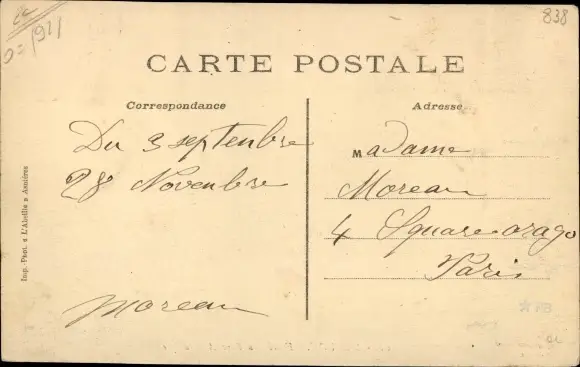 838
CARTE POSTALE
Correspondance
Adresse
Du 3 septenbre
28 Novenbre
Moreau
Madame
Moreau
4 Square arago
Paris
Imp.-Phot. « L'Abeille » Asnières